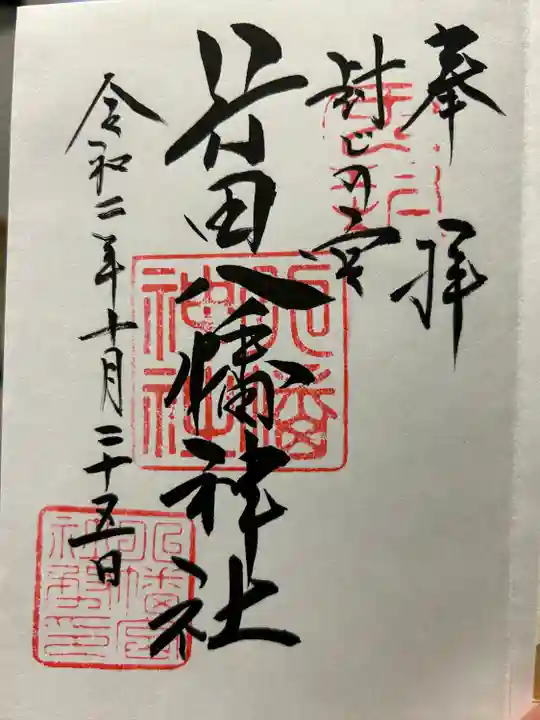 奉拝
封じの宮
行田八幡神社
令和二年十月二十五日
八幡
神社